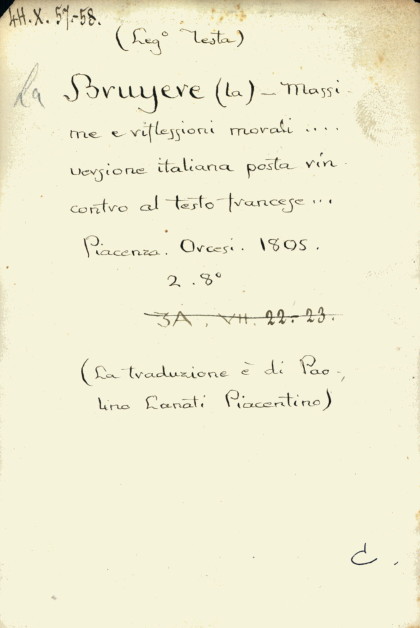 4H.X. 57.-58.
(Leg° Testa)
La Bruyere (la) - Massi
me e riflessioni morali ....
versione italiana posta rin
contro al testo francese ...
Piacenza. Orcesi. 1805.
2. 8°
3A. VII. 22-23.
(La traduzione è di Pao-
lino Lanati Piacentino)
C.